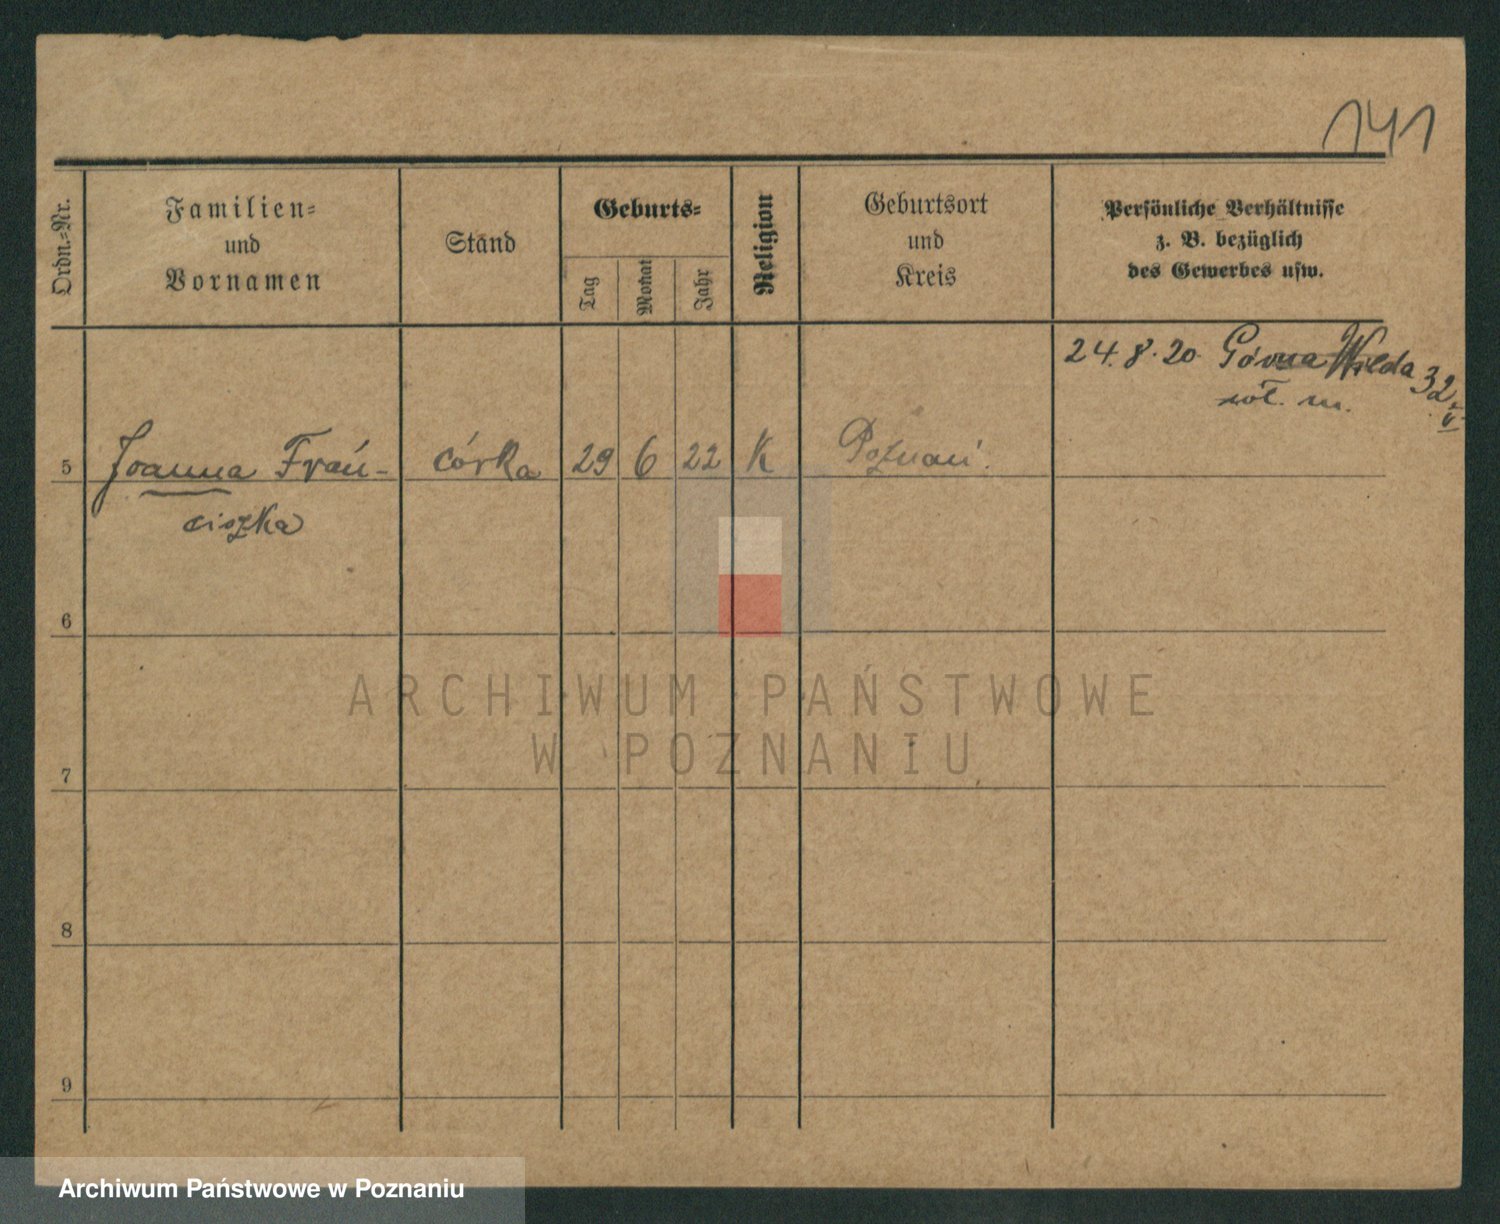 141
Ordn.=Nr.
Familien=
und
Vornamen
Stand
Geburts=
Tag
Monat
Jahr
Religion
Geburtsort
und
Kreis
Persönliche Verhältnisse
z. B. bezüglich
des Gewerbes usw.
24. 8. 20 Górna Wilda 32
5 Joanna Fran- córka 29 6 22 K Poznań.
ciszka
6
7
8
9
ARCHIWUM PAŃSTWOWE
W POZNANIU
Archiwum Państwowe w Poznaniu